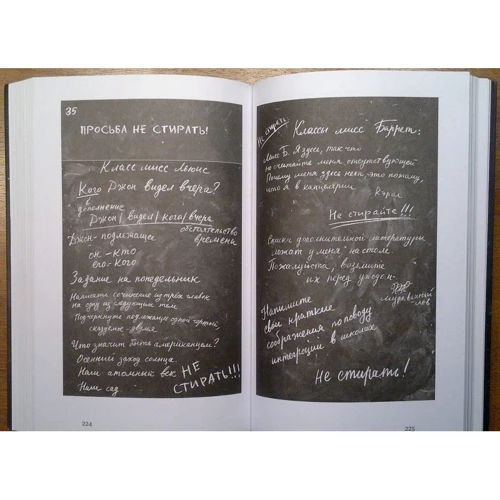 35
ПРОСЬБА НЕ СТИРАТЬ!
Класс мисс Льюис
Кого Джон видел вчера?
в
дополнение
Джон/видел/кого/вчера
Джон-подлежащее обстоятельство
времени
он - кто
его-кого
Задание на понедельник
Напишите сочинение из трёх слов
на одну из следующих тем.
Подчеркните подлежащее одной чертой
сказуемое - двумя.
Что значит быть американцем?
Осенний заход солнца.
Наш атомный век
Наш сад.
НЕ
СТИРАТЬ!!!
224
Не стирать!
Классы мисс Баррет:
мисс Б. Я здесь, так что
не считайте меня отсутствующей
Почему меня здесь нет, это потому,
что я в канцелярии
Кэрол
Не стирайте!!!
Списки дополнительной литературы
лежат у меня на столе.
Пожалуйста, возьмите
их перед уходом.
Напишите
свои краткие
соображения по поводу
интеграции в школах
Не стирать!
225